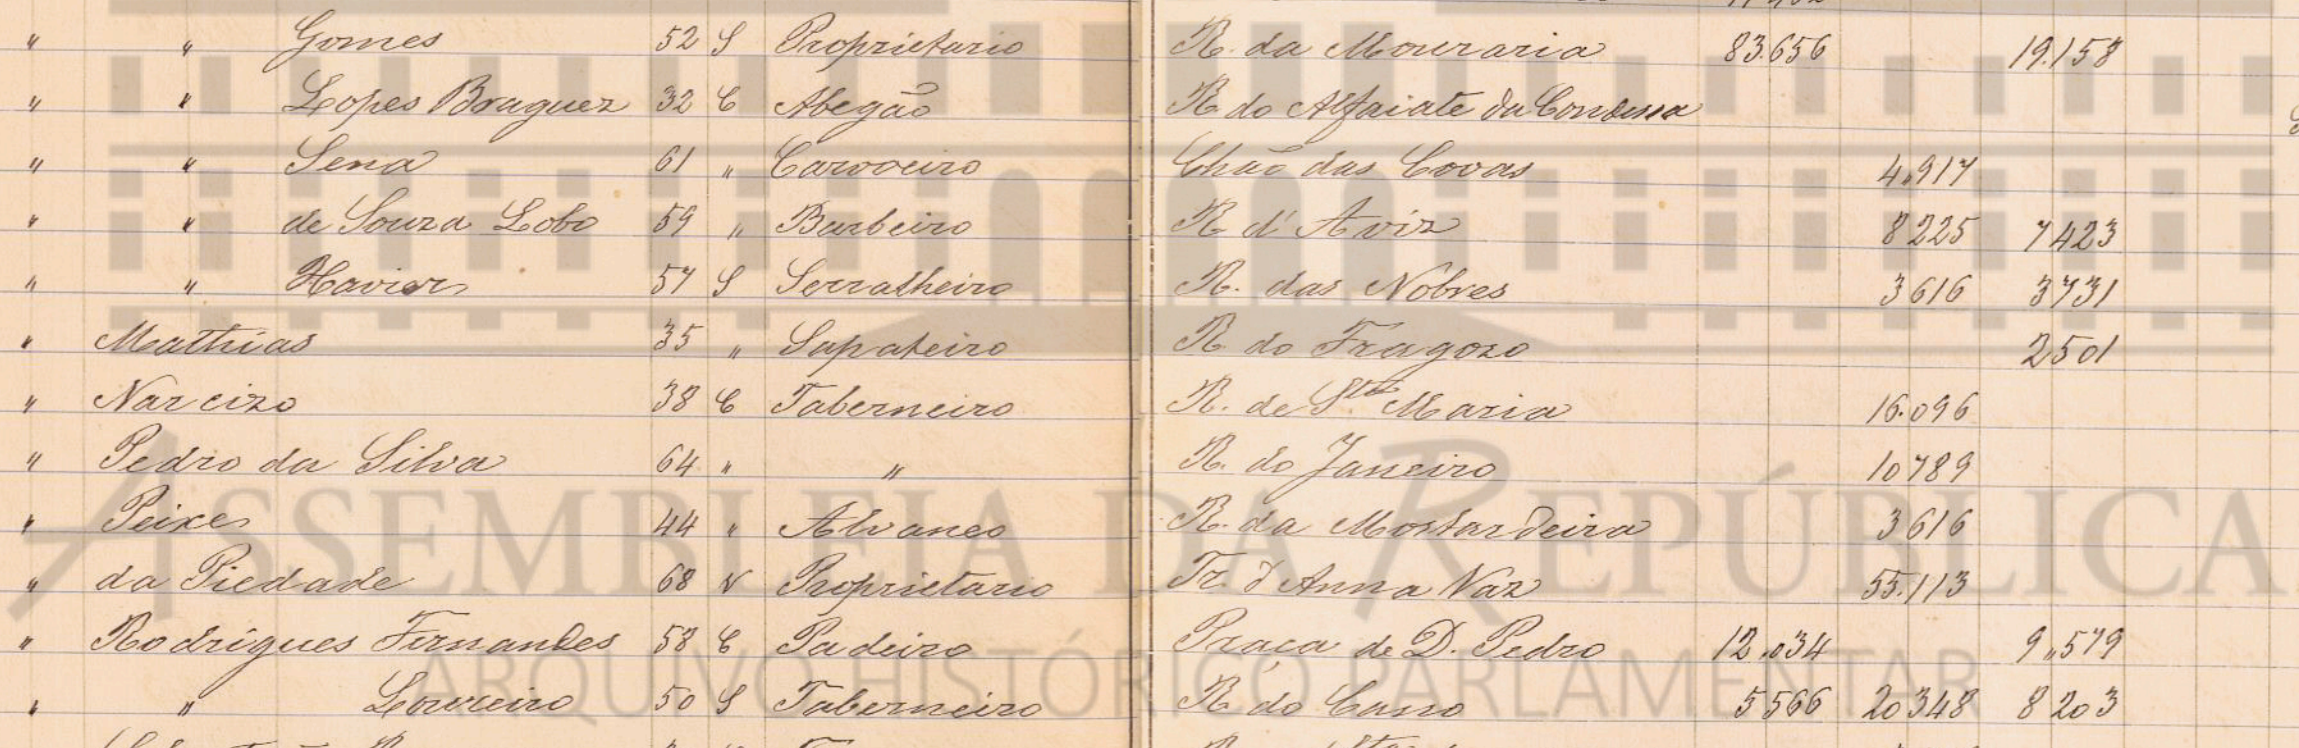 " " Gomes 52 S Proprietario R. da Mouraria 83.656 19.158
" " Lopes Braguez 32 C Abegão R do Alfaiate da Condessa
" " Sena 61 " Carvoeiro Chão das Covas 4,917
" " de Souza Lobo 59 " Barbeiro R d' Aviz 8225 7423
" " Xavier 57 S Serralheiro R. das Nobres 3616 3731
" Mathias 35 " Sapateiro R do Fragozo 2501
" Narcizo 38 C Taberneiro R. de Sta Maria 16.096
" Pedro da Silva 64 " " R. do Janeiro 10789
" Peixe 44 " Alvaneo R. da Mostardeira 3616
" da Piedade 68 V Proprietario Tr. d'Anna Vaz 55.113
" Rodrigues Fernandes 58 C Padeiro Praça de D. Pedro 12,034 9,579
" " Loureiro 50 S Taberneiro R do Cano 5566 20348 8203
ASSEMBLEIA DA REPÚBLICA
ARQUIVO HISTÓRICO PARLAMENTAR